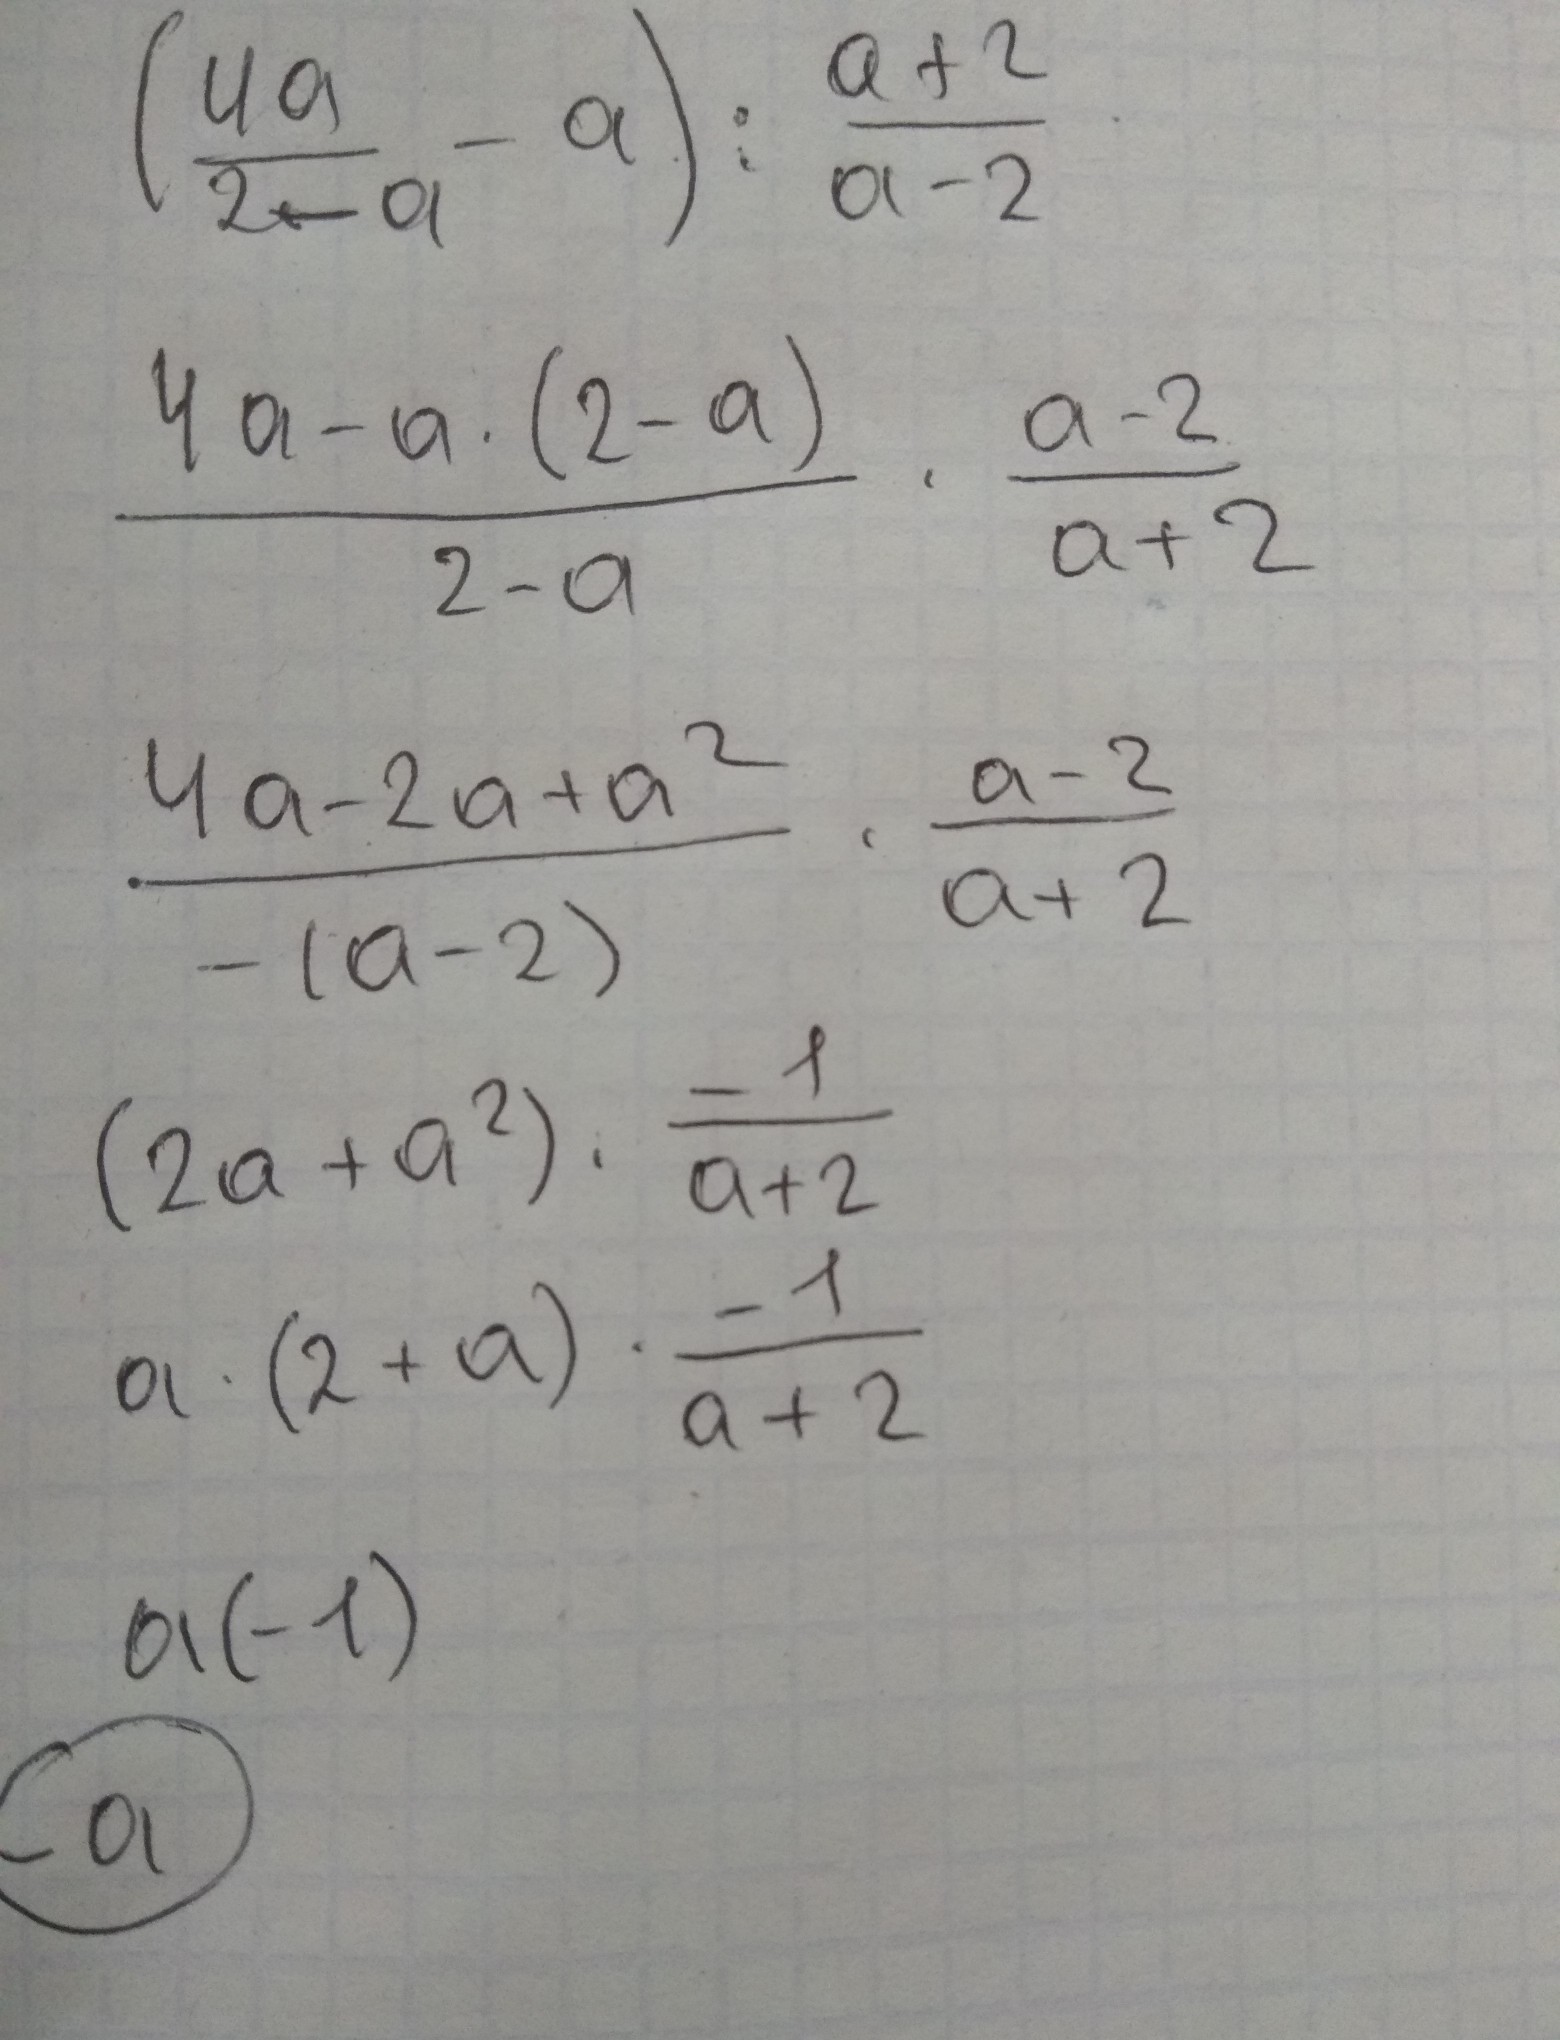 (4a/(2-a) - a) : (a+2)/(a-2)
(4a-a·(2-a))/(2-a) · (a-2)/(a+2)
(4a-2a+a²)/(-(a-2)) · (a-2)/(a+2)
(2a+a²) · (-1)/(a+2)
a·(2+a) · (-1)/(a+2)
a(-1)
-a